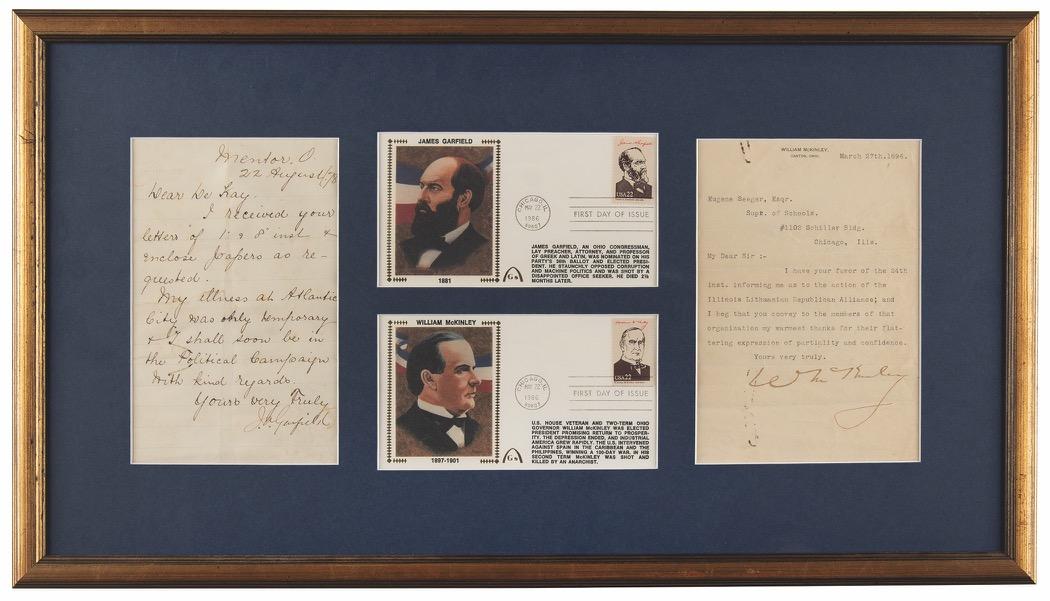 Mentor, O.
22 August/78
Dear De Kay.
I received your
letters of 1 & 8 inst &
enclose papers as re-
quested.
My illness at Atlantic
City was only temporary
& I shall soon be in
the Political Campaign
With kind regards.
Yours very Truly
J.A. Garfield
JAMES GARFIELD
1881
Gs
CHICAGO, IL
MAY 22
1986
60607
James A. Garfield
USA 22
FIRST DAY OF ISSUE
JAMES GARFIELD, AN OHIO CONGRESSMAN,
LAY PREACHER, ATTORNEY, AND PROFESSOR
OF GREEK AND LATIN, WAS NOMINATED ON HIS
PARTY'S 36th BALLOT AND ELECTED PRESI-
DENT. HE STAUNCHLY OPPOSED CORRUPTION
AND MACHINE POLITICS AND WAS SHOT BY A
DISAPPOINTED OFFICE SEEKER. HE DIED 2½
MONTHS LATER.
WILLIAM McKINLEY
1897-1901
Gs
CHICAGO, IL
MAY 22
1986
60607
USA 22
FIRST DAY OF ISSUE
U.S. HOUSE VETERAN AND TWO-TERM OHIO
GOVERNOR WILLIAM McKINLEY WAS ELECTED
PRESIDENT PROMISING RETURN TO PROSPER-
ITY. THE DEPRESSION ENDED, AND INDUSTRIAL
AMERICA GREW RAPIDLY. THE U.S. INTERVENED
AGAINST SPAIN IN THE CARIBBEAN AND THE
PHILIPPINES, WINNING A 100-DAY WAR. IN HIS
SECOND TERM McKINLEY WAS SHOT AND
KILLED BY AN ANARCHIST.
WILLIAM McKINLEY,
CANTON, OHIO.
March 27th.1896.
Eugene Seeger, Esqr.
Supt. of Schools.
#1103 Schiller Bldg.
Chicago, Ills.
My Dear Sir :-
I have your favor of the 24th
inst. informing me as to the action of the
Illinois Lithuanian Republican Alliance; and
I beg that you convey to the members of that
organization my warmest thanks for their flat-
tering expression of partiality and confidence.
Yours very truly.
Wm McKinley